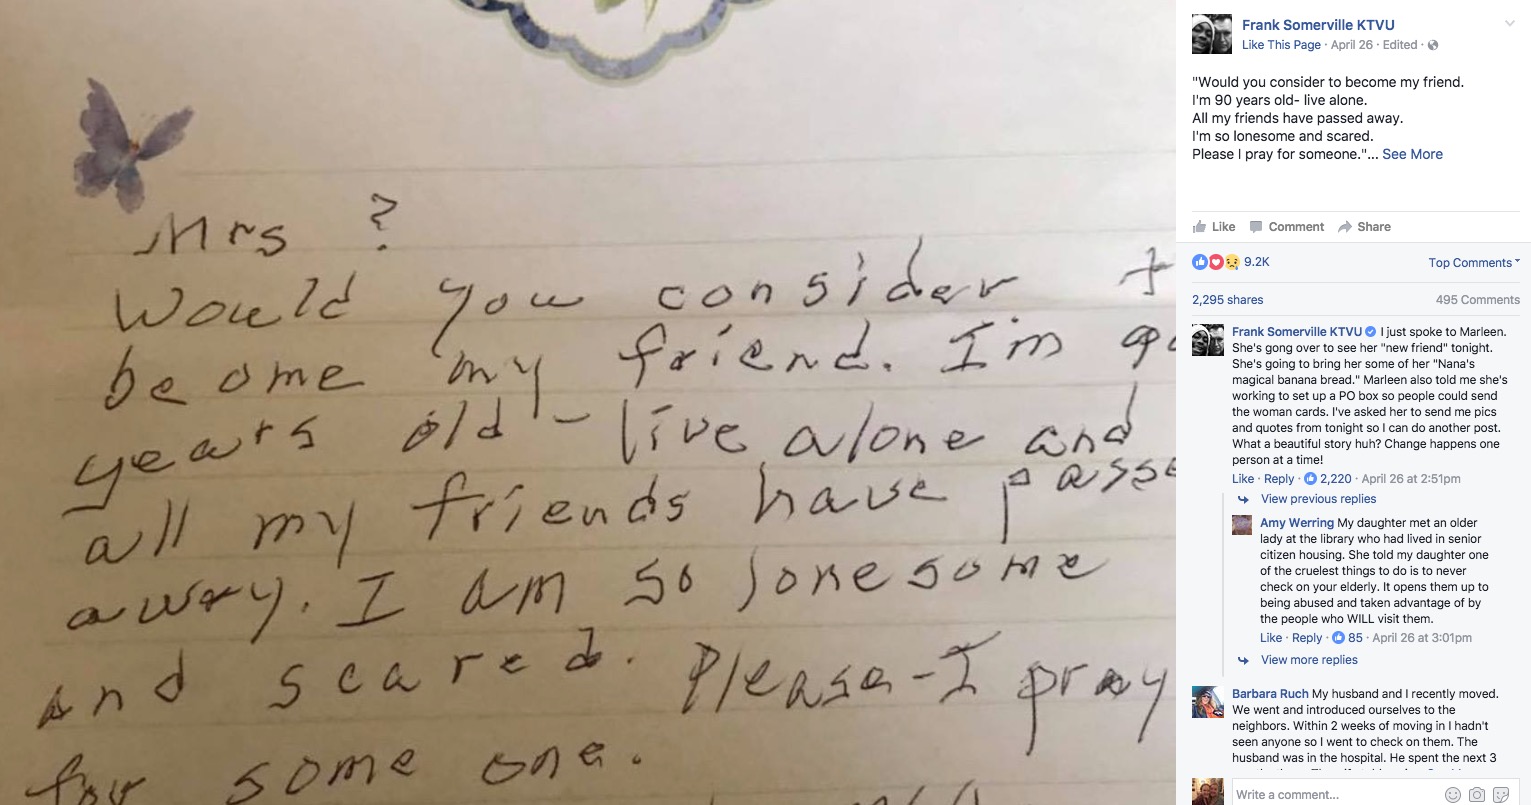 Mrs ?
Would you consider t
become my friend. I'm 90
years old - live alone and
all my friends have passe
away. I am so lonesome
and scared. Please - I pray
for some one.
Frank Somerville KTVU
Like This Page · April 26 · Edited ·
"Would you consider to become my friend.
I'm 90 years old- live alone.
All my friends have passed away.
I'm so lonesome and scared.
Please I pray for someone."... See More
Like Comment Share
9.2K Top Comments
2,295 shares 495 Comments
Frank Somerville KTVU I just spoke to Marleen.
She's gong over to see her "new friend" tonight.
She's going to bring her some of her "Nana's
magical banana bread." Marleen also told me she's
working to set up a PO box so people could send
the woman cards. I've asked her to send me pics
and quotes from tonight so I can do another post.
What a beautiful story huh? Change happens one
person at a time!
Like · Reply · 2,220 · April 26 at 2:51pm
View previous replies
Amy Werring My daughter met an older
lady at the library who had lived in senior
citizen housing. She told my daughter one
of the cruelest things to do is to never
check on your elderly. It opens them up to
being abused and taken advantage of by
the people who WILL visit them.
Like · Reply · 85 · April 26 at 3:01pm
View more replies
Barbara Ruch My husband and I recently moved.
We went and introduced ourselves to the
neighbors. Within 2 weeks of moving in I hadn't
seen anyone so I went to check on them. The
husband was in the hospital. He spent the next 3
Write a comment...